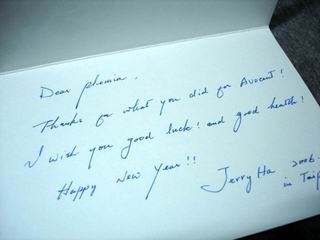 Dear phemia,
Thanks for what you did for Avocent!
I wish you good luck! and good health!
Happy New Year!!
Jerry Ha 2006.
in Taip